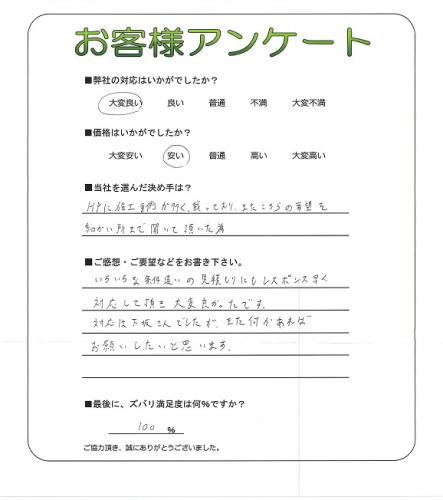 お客様アンケート
■弊社の対応はいかがでしたか?
大変良い 良い 普通 不満 大変不満
■価格はいかがでしたか?
大変安い 安い 普通 高い 大変高い
■当社を選んだ決め手は?
HPに施工事例が多く、載っており、またこちらの希望を
細かい所まで聞いて頂いた為
■ご感想・ご要望などをお書き下さい。
いろいろな条件違いの見積もりにもレスポンス早く
対応して頂き大変良かったです。
対応は下坂さんでしたが、また何かあれば
お願いしたいと思います。
■最後に、ズバリ満足度は何%ですか?
100 %
ご協力頂き、誠にありがとうございました。